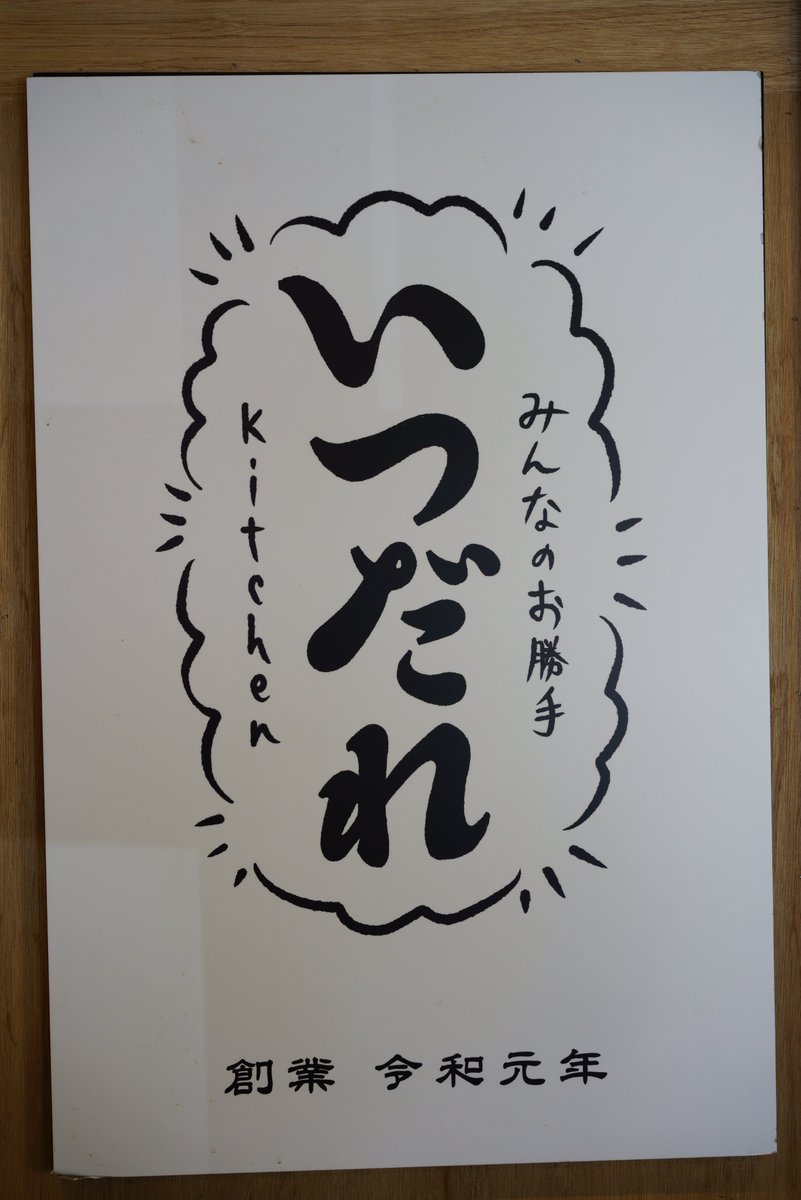 みんなのお勝手
いつだれ
kitchen
創業 令和元年